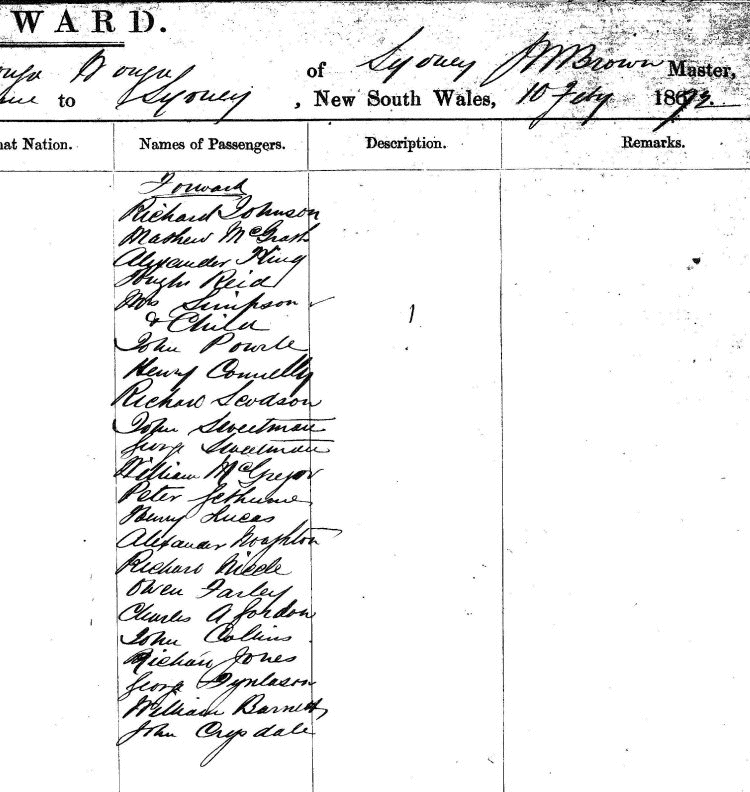 WARD.
Wonga of Sydney J M Brown Master,
to Sydney, New South Wales, 10 Feby 1872.
Nation.
Names of Passengers.
Description.
Remarks.
Forward
Richard Johnson
Mathew McGrath
Alexander King
Reid
Mrs Simpson
& Child
1
John
Henry Connelly
Richard
John Sweetman
George Sweetman
William McGregor
Peter
Henry Lucas
Alexander
Richard
Owen Farley
Charles A Gordon
John Collins
Richard Jones
George
William Barnett
John Crysdale